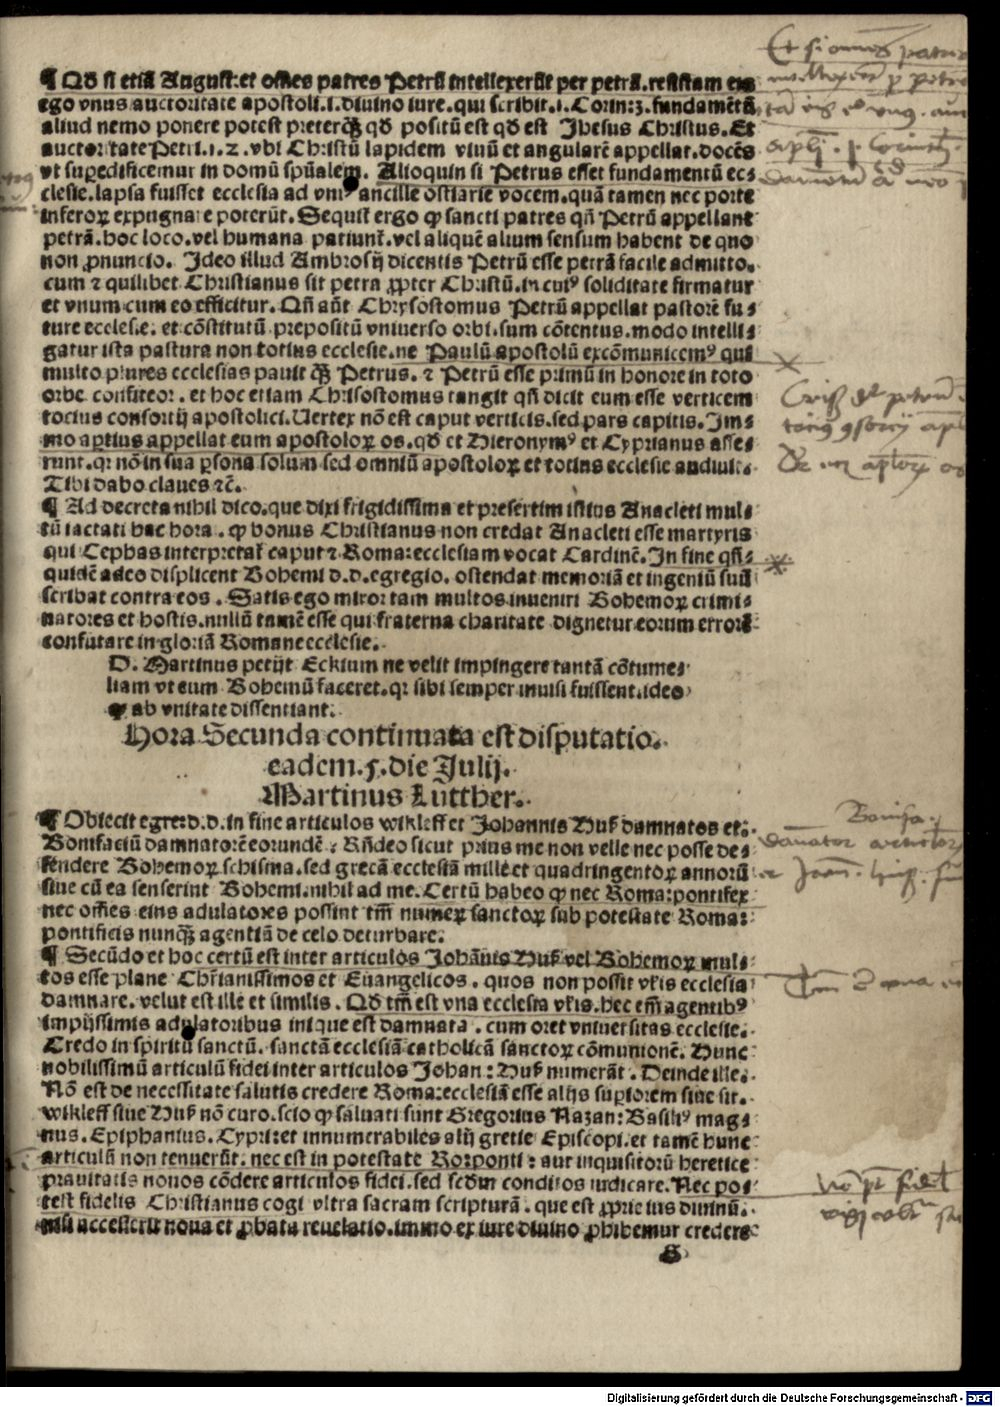 ¶ Qđ si etiā August:et oм̃es patres Petrū intellexerūt per petrā.resistam eis
ego vnus auctoritate apostoli.i.diuino iure.qui scribit.i.Corin:3.fundamētū
aliud nemo ponere potest preterq̄ȝ qđ positū est qđ est Jhesus Christus. Et
auctoritate Petri.i.2.vbi Christū lapidem viuū et angularē appellat.docēs
vt supedificemur in domū spūalem. Alioquin si Petrus esset fundamentū ec⸗
clesie.lapsa fuisset ecclesia ad vniꝰ ancille ostiarie vocem.quā tamen nec porte
inferoꝝ expugnare poterūt. Sequit̉ ergo ꝙ sancti patres qñ Petrū appellant
petrā.hoc loco.vel humana patiunt̉.vel aliquē alium sensum habent de quo
non ꝓnuncio. Ideo illud Ambrosij dicentis Petrū esse petrā facile admitto.
cum ⁊ quilibet Christianus sit petra ꝓpter Christū.in cuiꝰ soliditate firmatur
et vnum cum eo efficitur. Qñ aūt Chrysostomus Petrū appellat pastorē fu⸗
ture ecclesie. et cōstitutū prepositū vniuerso orbi.sum cōtentus.modo intelli⸗
gatur ista pastura non totius ecclesie.ne Paulū apostolū excōmunicemꝰ qui
multo plures ecclesias pauit q̄ȝ Petrus. ⁊ Petrū esse primū in honore in toto
orbe confiteor. et hoc etiam Chrisostomus tangit qñ dicit eum esse verticem
tocius consortij apostolici. Uertex nō est caput verticis.sed pars capitis. Im⸗
mo aptius appellat eum apostoloꝝ os.qđ et Hieronymꝰ et Cyprianus asse⸗
runt.qꝛ nō in sua ꝑsona solum sed omniū apostoloꝝ et totius ecclesie audiuit.
Tibi dabo claues ⁊c̄.
¶ Ad decreta nihil dico.que dixi frigidissima et presertim istius Anacleti mul⸗
tū iactati hac hora. ꝙ bonus Christianus non credat Anacleti esse martyris
qui Cephas interpretat̉ caput ⁊ Roma:ecclesiam vocat Cardinē. In fine qñ⸗
quidē adeo displicent Bohemi d.d.egregio. ostendat memoriā et ingeniū suū
scribat contra eos. Satis ego miror tam multos inueniri Bohemoꝝ crimi⸗
natores et hostis.nullū tamē esse qui fraterna charitate dignetur eorum errorē
confutare in gloriā Romane ecclesie.
D. Martinus petijt Eckium ne velit impingere tantā cōtume⸗
liam vt eum Bohemū faceret.qꝛ sibi semper inuisi fuissent.ideo
ꝙ ab vnitate dissentiant.
Hora Secunda continuata est disputatio.
eadem.5.die Julij.
Martinus Lutther.
¶ Obiecit egre:d.d.in fine articulos wikleff et Johannis Huß damnatos et
Bonifaciū damnatorē eorundē: Rñdeo sicut prius me non velle nec posse de⸗
fendere Bohemoꝝ schisma.sed grecā ecclesiā mille et quadringentoꝝ annorū
siue cū ea senserint Bohemi.nihil ad me. Certū habeo ꝙ nec Roma:pontifex
nec om̃es eius adulatores possint tm̄ numeꝝ sanctoꝝ sub potestate Roma:
pontificis nunq̄ȝ agentiā de celo deturbare.
¶ Secūdo et hoc certū est inter articulos Johānis Huß vel Bohemoꝝ mul⸗
tos esse plane Chr̄ianissimos et Euangelicos. quos non possit vl̄is ecclesia
damnare. velut est ille et similis. Qđ tm̄ est vna ecclesia vl̄is.hec em̄ agentibꝰ
impijssimis adulatoribus inique est damnata. cum oret vniuersitas ecclesie.
Credo in spiritū sanctū. sanctā ecclesiā catholicā sanctoꝝ cōmunionē. Hunc
nobilissimū articulū fidei inter articulos Johan: Huß numerāt. Deinde ille.
Nō est de necessitate salutis credere Roma:ecclesiā esse alijs superiorem siue sit.
wikleff siue Huß nō curo.scio ꝙ saluati sunt Gregorius Nazan:Basiliꝰ mag⸗
nus. Epiphanius. Cypri:et innumerabiles alij gretie Episcopi.et tamē hunc
articulū non tenuerūt. nec est in potestate Ro:ponti: aut inquisitorū heretice
prauitatis nouos cōdere articulos fidei. sed scđm conditos iudicare. Nec po⸗
test fidelis Christianus cogi vltra sacram scripturā. que est ꝓprie ius diuinū.
nisi accesserit noua et ꝓbata reuelatio.immo ex iure diuino ꝓhibemur credere
Digitalisierung gefördert durch die Deutsche Forschungsgemeinschaft - DFG